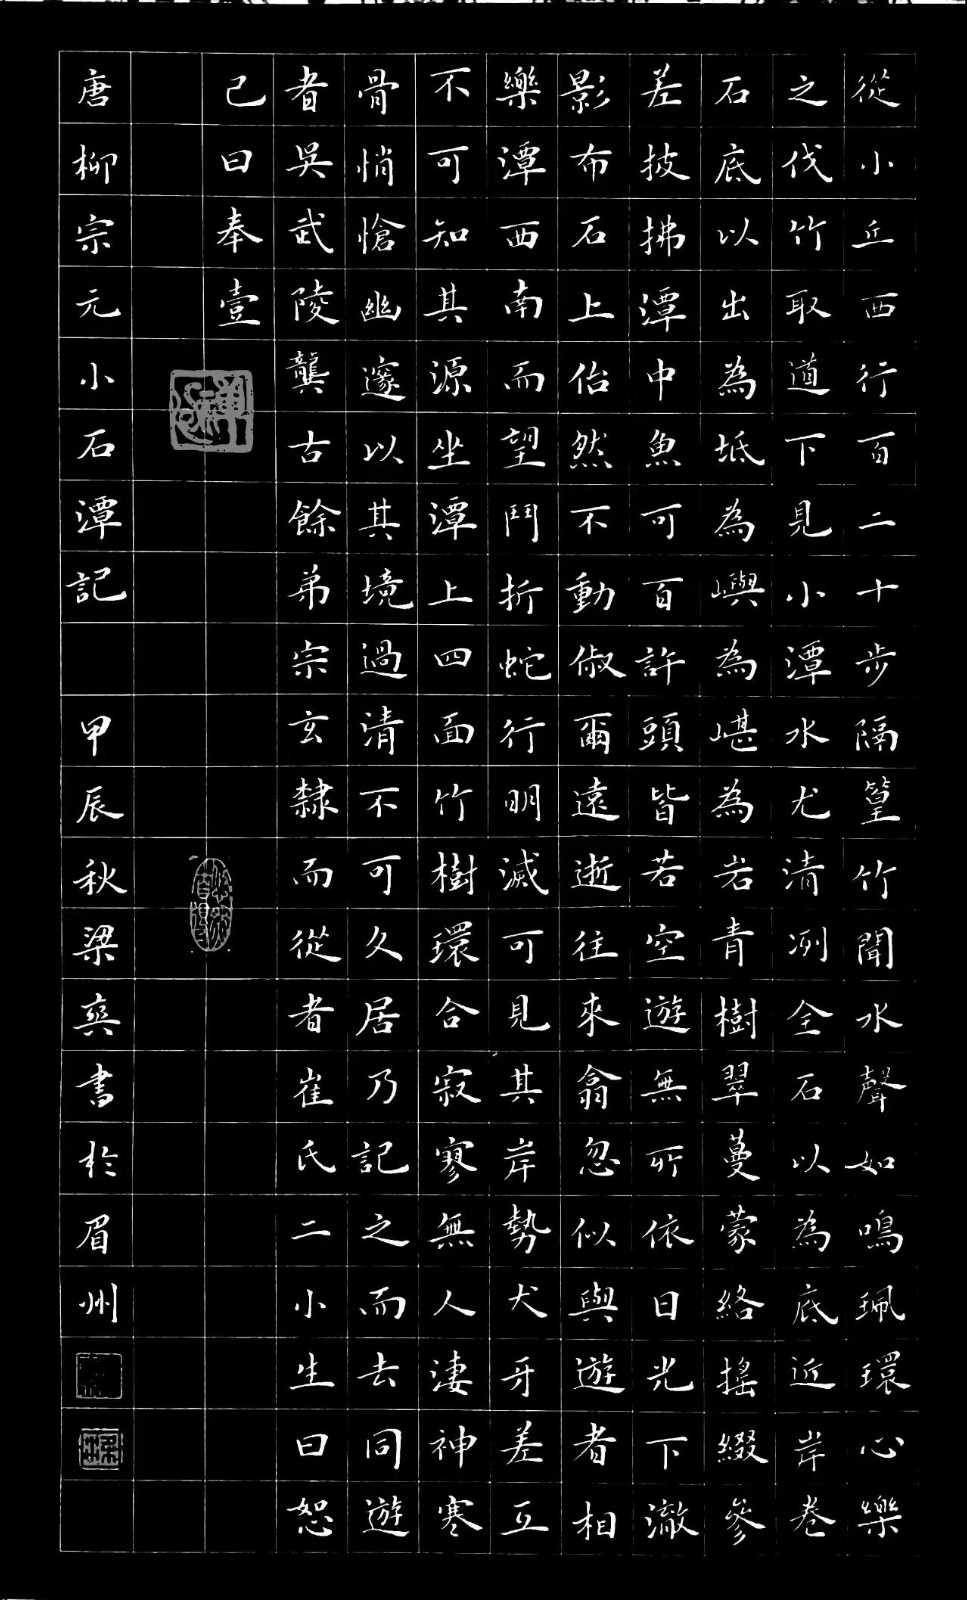 從小丘西行百二十步隔篁竹聞水聲如鳴珮環心樂
之伐竹取道下見小潭水尤清冽全石以為底近岸卷
石底以出為坻為嶼為嵁為岩青樹翠蔓蒙絡搖綴參
差披拂潭中魚可百許頭皆若空遊無所依日光下澈
影布石上佁然不動俶爾遠逝往來翕忽似與遊者相
樂潭西南而望鬥折蛇行明滅可見其岸勢犬牙差互
不可知其源坐潭上四面竹樹環合寂寥無人淒神寒
骨悄愴幽邃以其境過清不可久居乃記之而去同遊
者吳武陵龔古餘弟宗玄隸而從者崔氏二小生曰恕
己曰奉壹
唐柳宗元小石潭記 甲辰秋梁奕書於眉州